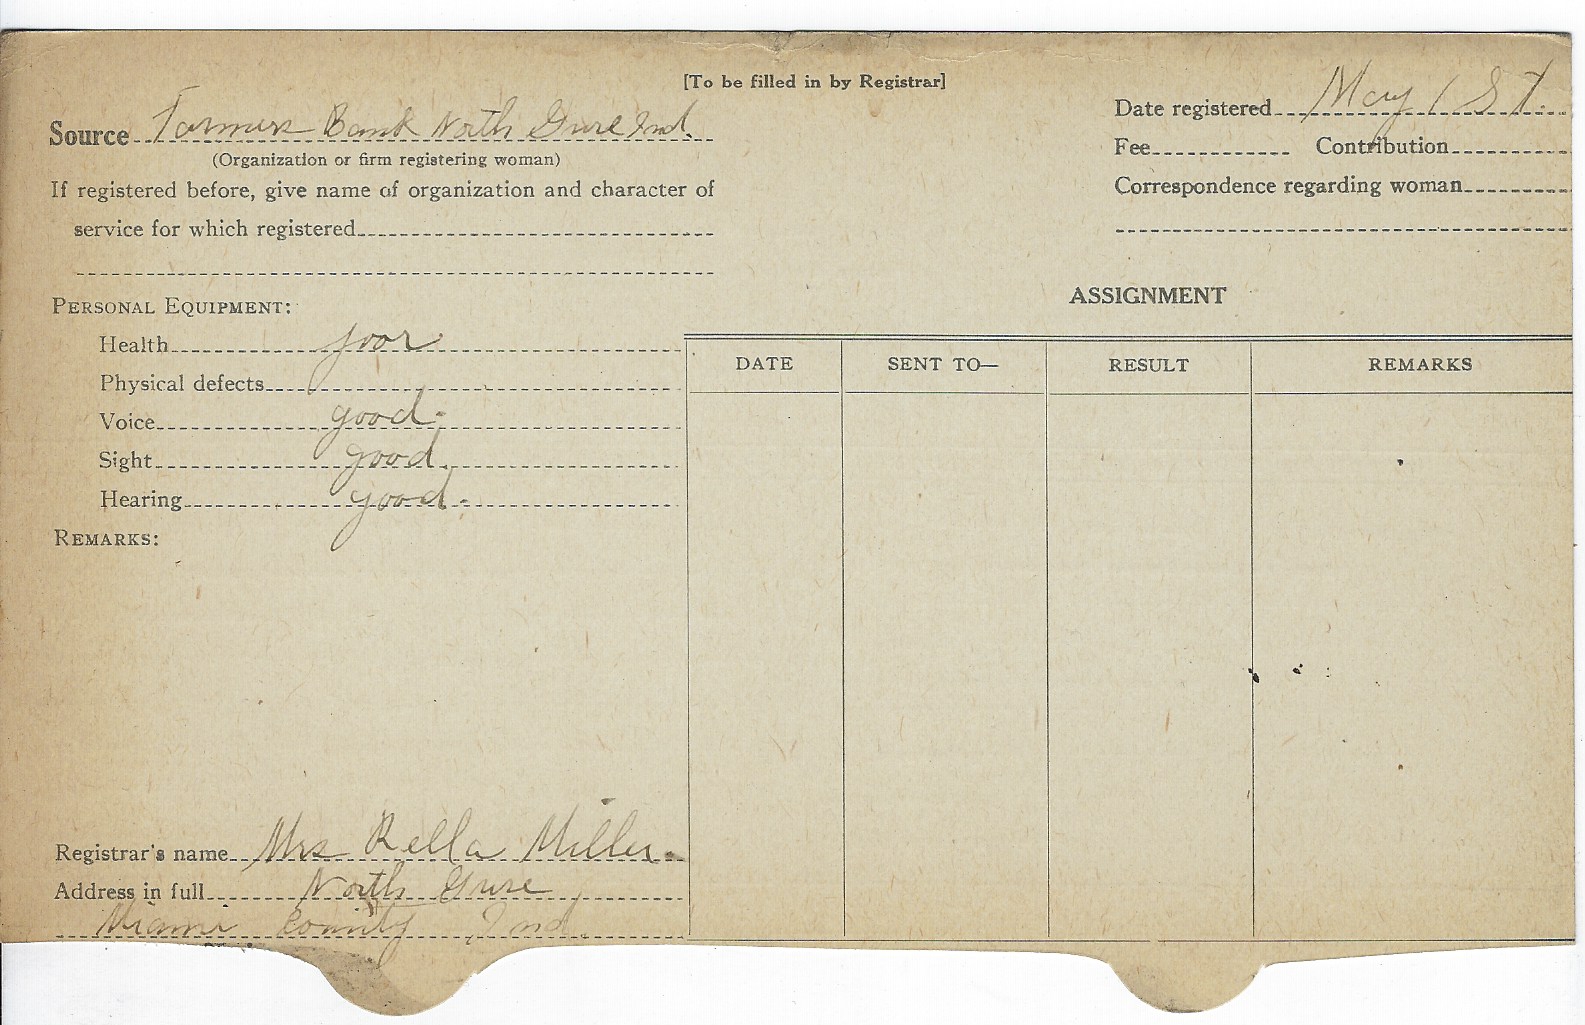 [To be filled in by Registrar]
Source Farmers Bank North Grove Ind.
(Organization or firm registering woman)
If registered before, give name of organization and character of
service for which registered
Date registered May 1 St.
Fee Contribution
Correspondence regarding woman
PERSONAL EQUIPMENT:
Health poor
Physical defects
Voice good.
Sight good.
Hearing good.
REMARKS:
Registrar's name Mrs Rella Miller.
Address in full North Grove
Miami County Ind.
ASSIGNMENT
DATE SENT TO— RESULT REMARKS